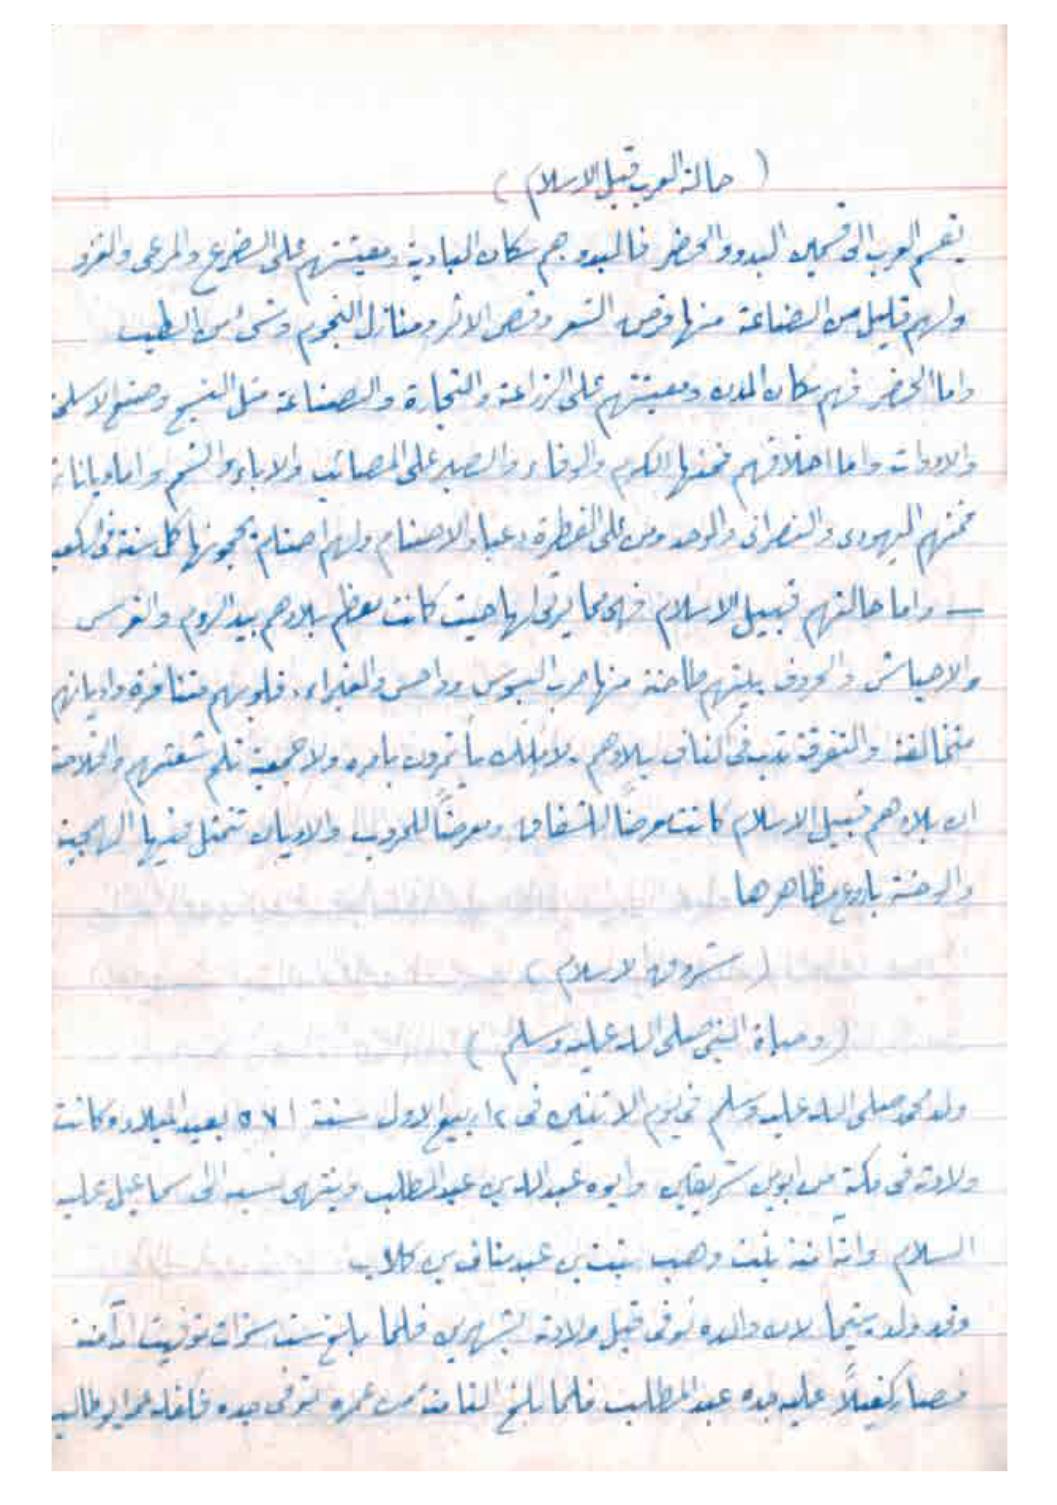 ( حالة العرب قبل الاسلام )
ينقسم العرب الى قسمين البدو والحضر فالبدو هم سكان البادية ومعيشتهم على الضرع والمرعى والغزو
ولهم قليل من الصناعة منها قرض الشعر وقص الاثر ومنازل النجوم وشئ من الطب
واما الحضر فهم سكان المدن ومعيشتهم على الزراعة والتجارة والصناعة مثل النسج وصنع الاسلحة
والادوات واما اخلاقهم فمنها الكرم والوفاء والصبر على المصائب والاباء والشمم واما دياناتهم
فمنهم اليهودى والنصرانى والموحد ومن على الفطرة وعباد الاصنام ولهم اصنام يحجونها كل سنة فى الكعبة
— واما حالتهم قبيل الاسلام فهى مما يرثى لها حيث كانت معظم بلادهم بيد الروم والفرس
والاحباش والحروب بينهم طاحنة منها حرب البسوس وداحس والغبراء. قلوبهم متنافرة واديانهم
متخالفة والتفرقة تدب فى اكناف بلادهم. لا ملك يأتمرون بامره ولا جمعية تلم شعثهم والخلاصة
ان بلادهم قبيل الاسلام كانت معرضا للشقاق ومعرضاً للحروب والاديان تتمثل فيها الهمجية
والوحشة باروع مظاهرها
( شروق الاسلام )
( وحياة النبى صلى الله عليه وسلم )
ولد محمد صلى الله عليه وسلم فى يوم الاثنين فى ١٢ ربيع الاول سنة ٥٧١ بعد الميلاد وكانت
ولادته فى مكة من ابوين شريفين وابوه عبد الله بن عبد المطلب وينتهى نسبه الى اسماعيل عليه
السلام وامه آمنة بنت وهب بن عبد مناف بن كلاب
وقد ولد يتيما لان والده توفى قبل ولادته بشهرين فلما بلغ ست سنوات توفيت امه آمنة
فصار كفيلاً عليه جده عبد المطلب فلما بلغ الثامنة من عمره توفى جده فكفله عمه ابو طالب